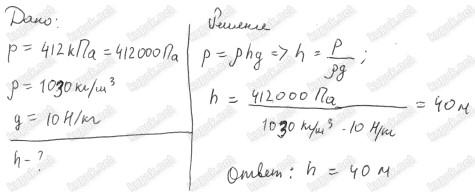 Дано:
p = 412 кПа = 412000 Па
ρ = 1030 кг/м³
g = 10 Н/кг
h - ?
Решение
p = ρhg => h = p/ρg ;
h = 412000 Па / 1030 кг/м³ · 10 Н/кг = 40 м
Ответ: h = 40 м